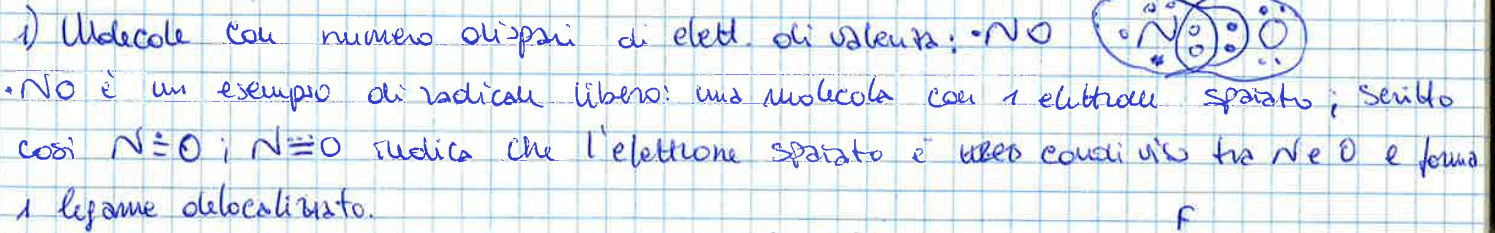 1) Molecole con numero dispari di elett. di valenza: •NO N O
•NO è un esempio di radicale libero: una molecola con 1 elettrone spaiato; scritto
così N≐O; N≡O indica che l'elettrone spaiato è condiviso tra N e O e forma
1 legame delocalizzato.
F